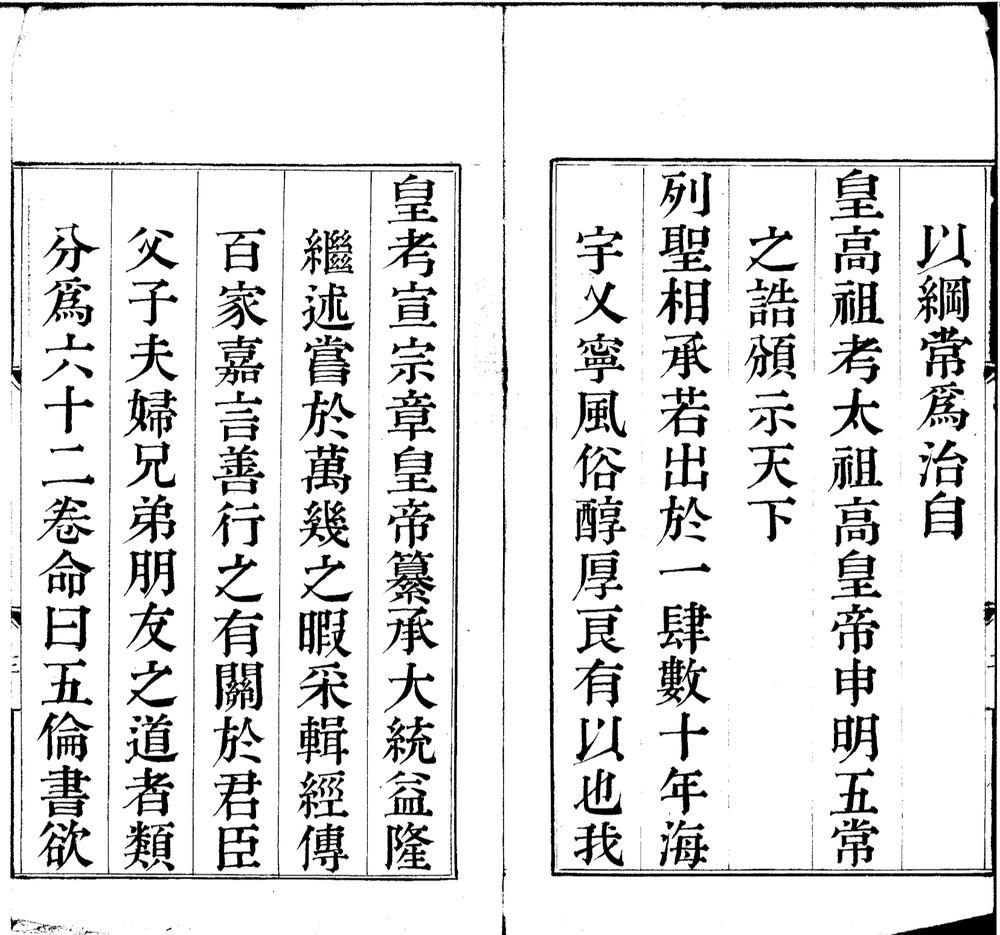 以綱常爲治自
皇高祖考太祖高皇帝申明五常
之誥頒示天下
列聖相承若出於一肆數十年海
宇乂寧風俗醇厚良有以也我
皇考宣宗章皇帝纂承大統益隆
繼述嘗於萬幾之暇采輯經傳
百家嘉言善行之有關於君臣
父子夫婦兄弟朋友之道者類
分爲六十二卷命曰五倫書欲